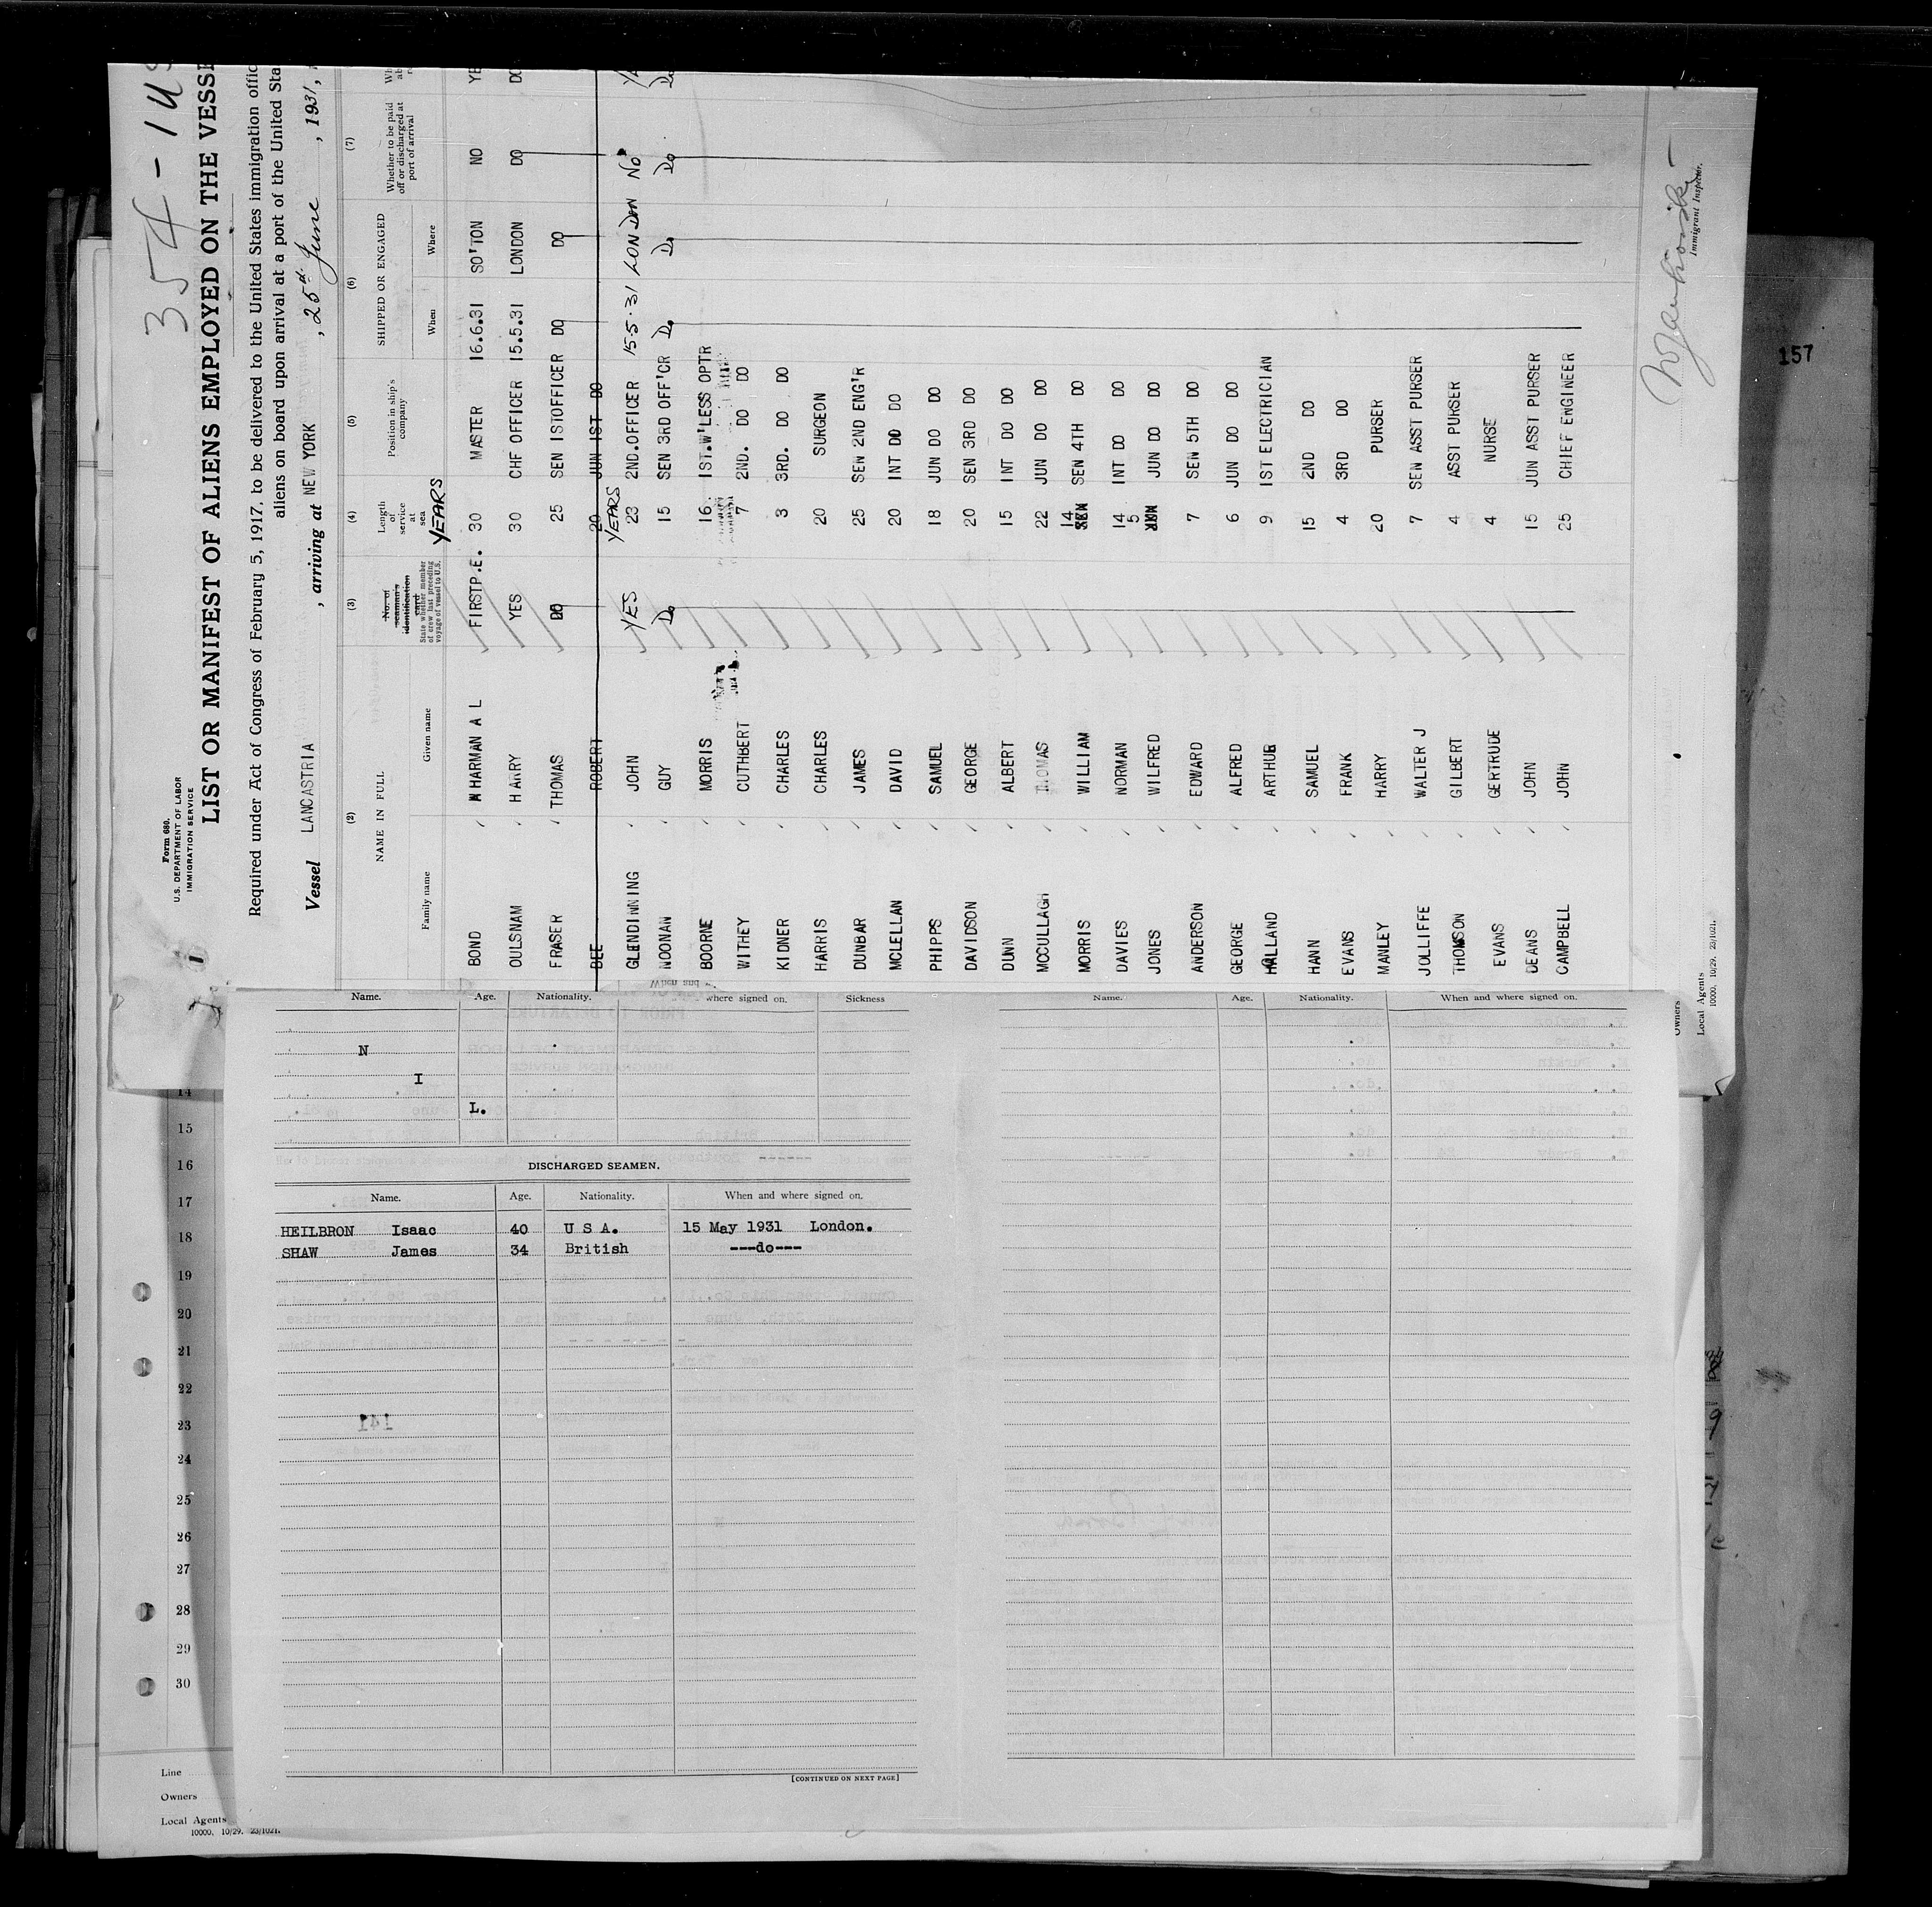 354-14
Form 680.
U.S. DEPARTMENT OF LABOR
IMMIGRATION SERVICE
LIST OR MANIFEST OF ALIENS EMPLOYED ON THE
Required under Act of Congress of February 5, 1917, to be delivered to the United States immigration
aliens on board upon arrival at a port of the United
Vessel LANCASTRIA , arriving at NEW YORK , 25th June , 1931,
(2) (3) (4) (5) (6) (7)
NAME IN FULL
Family name Given name
No. of seaman's identification card
State whether member of crew last preceding voyage of vessel to U.S.
Length of service at sea
YEARS
Position in ship's company
SHIPPED OR ENGAGED
When Where
Whether to be paid off or discharged at port of arrival
BOND WHARMAN A L FIRSTP.E. 30 MASTER 16.6.31 SO'TON NO
OULSNAM HARRY YES 30 CHF OFFICER 15.5.31 LONDON DO DO
FRASER THOMAS DO 25 SEN 1STOFFICER DO DO
BEE ROBERT 20 JUN 1ST DO
YEARS
GLENDINNING JOHN YES 23 2ND.OFFICER 15.5.31 LONDON No
NOONAN GUY Do 15 SEN 3RD OFF'CR Do Do Do Do
BOORNE MORRIS 16 1ST.W'LESS OPTR
WITHEY CUTHBERT 7 2ND. DO DO
KIDNER CHARLES 3 3RD. DO DO
HARRIS CHARLES 20 SURGEON
DUNBAR JAMES 25 SEN 2ND ENG'R
MCLELLAN DAVID 20 INT DO DO
PHIPPS SAMUEL 18 JUN DO DO
DAVIDSON GEORGE 20 SEN 3RD DO
DUNN ALBERT 15 INT DO DO
MCCULLAGH THOMAS 22 JUN DO DO
MORRIS WILLIAM 14 SEN 4TH DO
DAVIES NORMAN 14 INT DO DO
JONES WILFRED 5 JUN DO DO
ANDERSON EDWARD 7 SEN 5TH DO
GEORGE ALFRED 6 JUN DO DO
HALLAND ARTHUR 9 1ST ELECTRICIAN
HANN SAMUEL 15 2ND DO
EVANS FRANK 4 3RD DO
MANLEY HARRY 20 PURSER
JOLLIFFE WALTER J 7 SEN ASST PURSER
THOMSON GILBERT 4 ASST PURSER
EVANS GERTRUDE 4 NURSE
DEANS JOHN 15 JUN ASST PURSER
CAMPBELL JOHN 25 CHIEF ENGINEER
Immigrant Inspector.
Owners
Local Agents
10000. 10/29. 23/1021.
157
When and
Name. Age. Nationality. where signed on. Sickness
N
I
L.
DISCHARGED SEAMEN.
Name. Age. Nationality. When and where signed on.
HEILBRON Isaac 40 U S A. 15 May 1931 London.
SHAW James 34 British ---do---
[CONTINUED ON NEXT PAGE]
Name. Age. Nationality. When and where signed on.
14
15
16
17
18
19
20
21
22
23
24
25
26
27
28
29
30
Line
Owners
Local Agents
10000. 10/29. 23/1021.